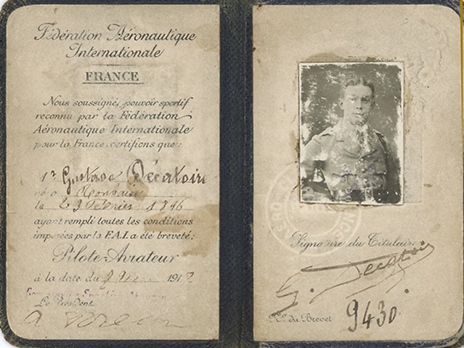 Fédération Aéronautique
Internationale
FRANCE
Nous soussigné, pouvoir sportif
reconnu par la Fédération
Aéronautique Internationale
pour la France, certifions que:
Gustave Décatoire
né à
le 29 Février 1896
ayant rempli toutes les conditions
imposées par la F.A.I. a été breveté:
Pilote-Aviateur
à la date du 191
Le Président
Signature du Titulaire
G. Decatoire
No. du Brevet 9430.